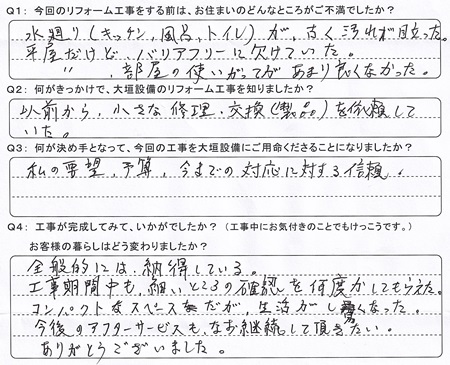 Q1: 今回のリフォーム工事をする前は、お住まいのどんなところがご不満でしたか?
水廻り(キッチン,風呂,トイレ)が、古く汚れが目立った。
平屋だけど、バリアフリーに欠けていた。
〃 、部屋の使いがってがあまり良くなかった。
Q2: 何がきっかけで、大垣設備のリフォーム工事を知りましたか?
以前から、小さな修理・交換(製品)を依頼して
いた。
Q3: 何が決め手となって、今回の工事を大垣設備にご用命くださることになりましたか?
私の要望、予算、今までの対応に対する信頼。
Q4: 工事が完成してみて、いかがでしたか? (工事中にお気付きのことでもけっこうです。)
お客様の暮らしはどう変わりましたか?
全般的には、納得している。
工事期間中も、細いところの確認を何度かしてもらえた。
コンパクトなスペースだが、生活がし易くなった。
今後のアフターサービスも、なお継続して頂きたい。
ありがとうございました。